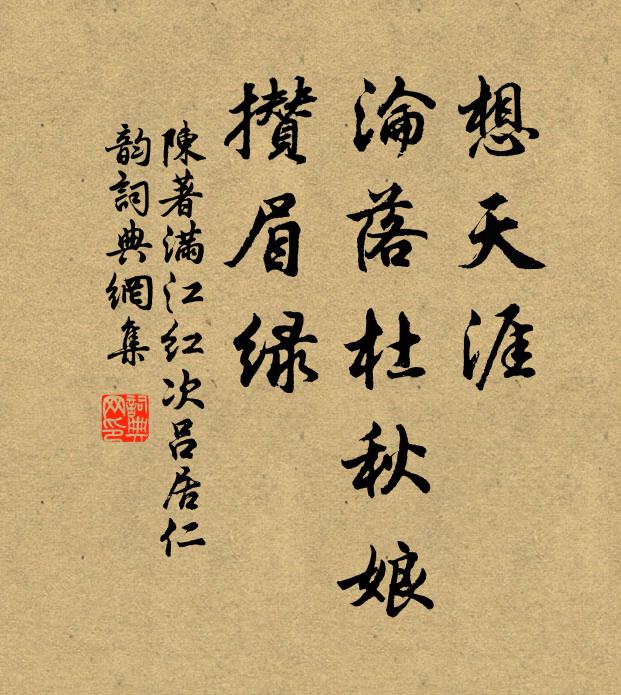 想天涯
淪落杜秋娘
攢眉绿
陳著滿江红次吕居仁
韵詞典網集
詞典网印